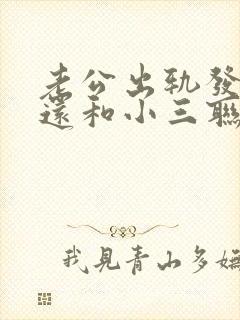 老公出轨發
還和小三聯
我見青山多嫵